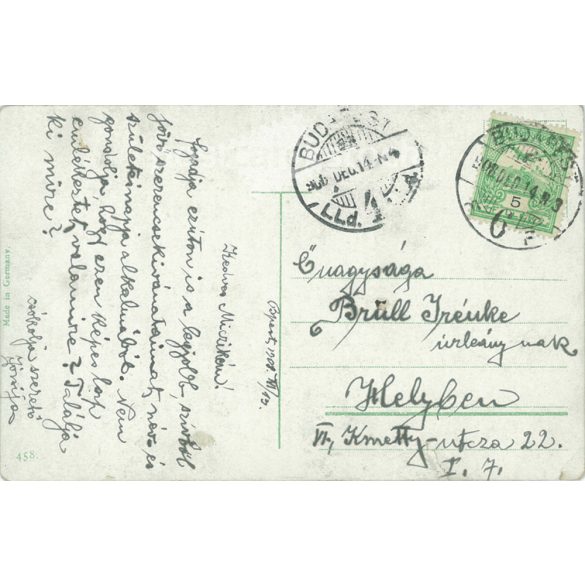 Bpest, 908. XII/12.
Kedves Micikém!
Fogadja ezúton is a legjobb, szívből
jövő szerencsekívánataimat, név- és
születésnapja alkalmából. Nem
gondolja, hogy ezen képes lap
emlékeztet valamire? Találja
ki mire?
csókolja szerető
Made in Germany
458.
BUDAPEST
908 DEC. 14. N4
BUDAPEST
908 DEC 14 N3
5
6
Őnagysága
Brüll Irénke
úrleánynak
Helyben
VI, Kmetty-utcza 22.
I. 7.